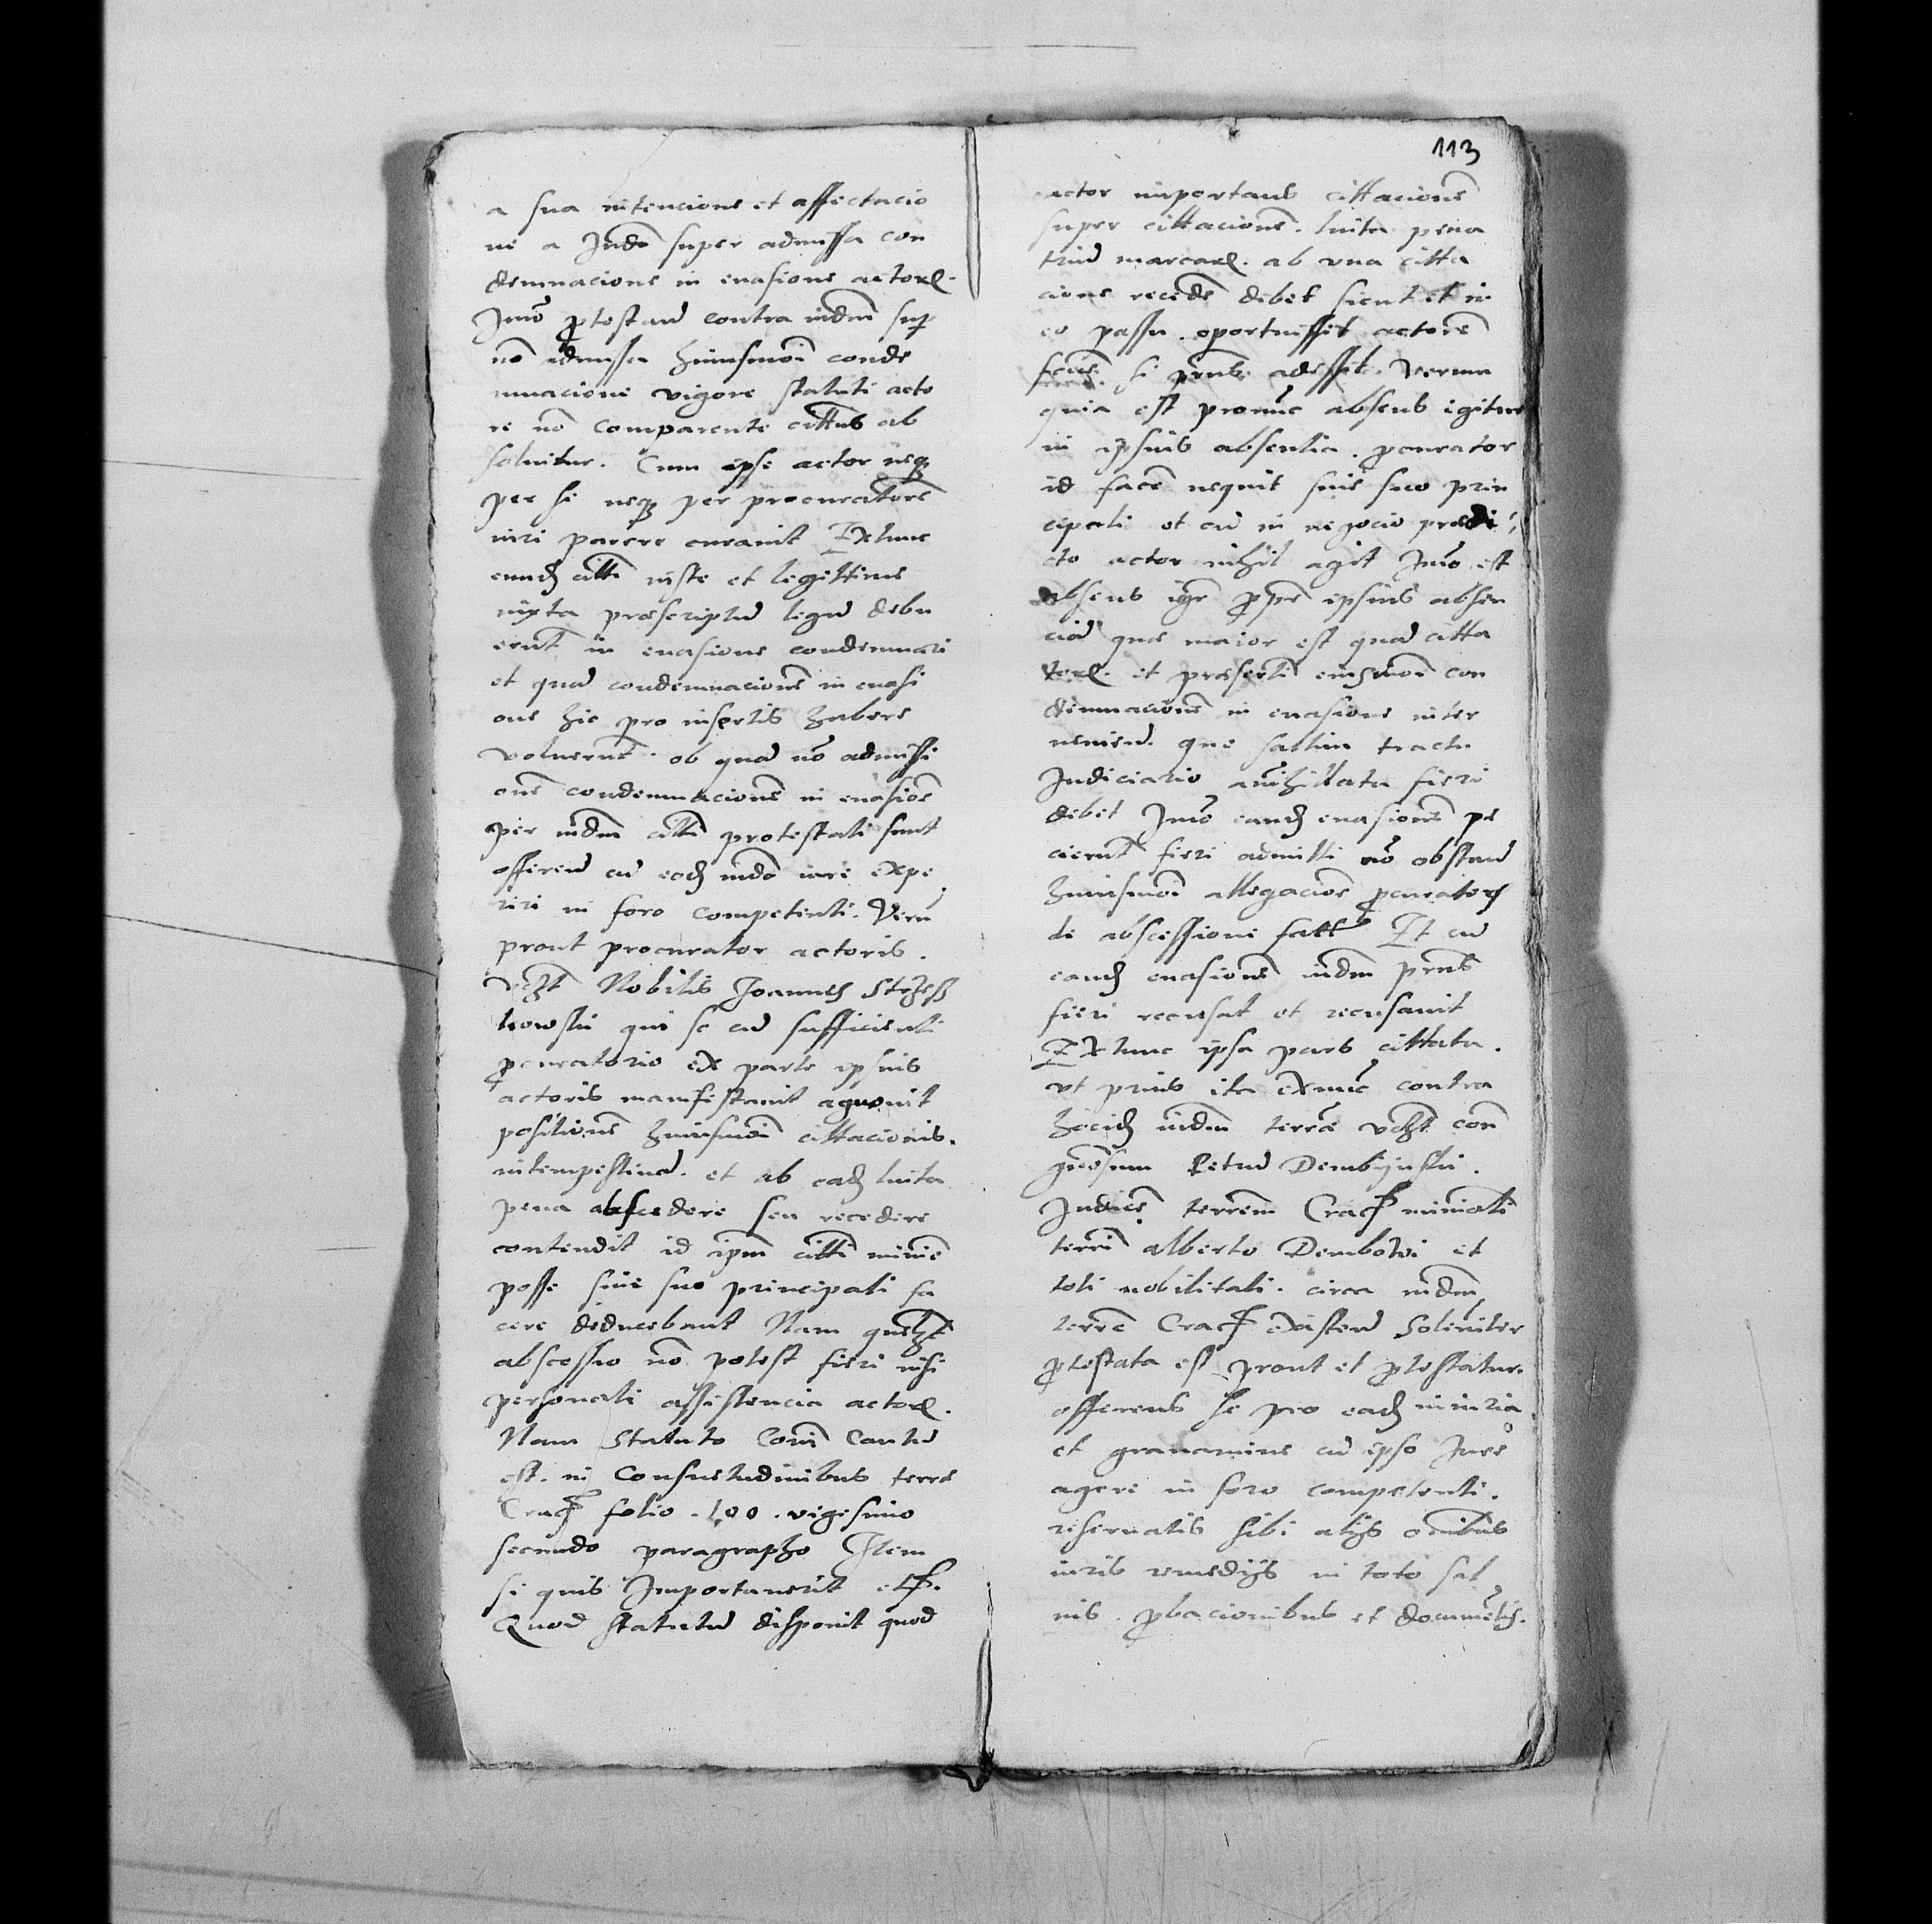 a sua intencione et affectacio
ne a Iudo super admissa con
demnacione in evasione actorꝭ.
Imo ꝓtestand contra iudm sup
no admissa huiusmoi conde
mnacione vigore statuti acto
re no comparente cittus ab
soluitur. Cum ipse actor neqꝫ
per se neqꝫ per procuratore
iuri parere curauit Extunc
eundꝫ citti iuste et legittime
iuxta prescriptu legu debu
erut in euasione condemnari
et qua condemnacione in euasi
one hic pro insertis habere
voluerut. ob qua no admissi
one condemnacione in euasioe
per iudm citti protestati sunt
offerend cu eodꝫ iudo iure expe
riri in foro competenti. Veru
prout procurator actoris.
vꝫt Nobilis Joannes
qui se cu sufficienti
ꝓcuratorio ex parte ipsius
actoris manifestauit agnouit
positione huiusmoi cittacionis.
intempestiua. et ab eadꝫ luita
pena abscedere seu recedere
contendit id ipm citti minie
posse sine suo principali fa
cere deducebant Nam
abscessio no potest fieri nisi
personali assistencia actorꝭ.
Nam Statuto Coni Cautu
est. in Consuetudinibus terre
Crac folio .100. vigesimo
secundo paragrapho Item
si quis Importauerit etc.
Quod statutu disponit quod
113
actor importans cittacione
super cittacione. luita pena
triu marcarꝭ. ab vna citta
cione recede debet sicut et in
eo passu. oportuisset actore
face. si prns adesset. Verum
quia est pronuc absens igitur
in ipsius absentia. ꝓcurator
id face nequit sine suo prin
cipali et cu in negocio predi
cto actor nihil agit Imo est
absens igr ꝓpr ipsius absen
cia que maior est qua citta
torꝭ. et preserti eiusmoi con
demnacione in euasione inter
veniend. que saltim tractu
Iudiciario annihillata fieri
debet Imo eandꝫ euasione pe
cierut fieri admitti no obstand
huiusmoi allegacioe ꝓcuratorꝫ
de abscessione fatt Et cu
eandꝫ euasione iudm prns
fieri recusat et recusauit
Extunc ipsa pars cittata.
vt prius ita exnuc contra
iudm terre vꝫt
gnosum Petru Dembijnski.
Iudice. terrem Crac
terri alberto Dembowi et
toti nobilitati. circa iudm
terre Crac existend Soleniter
ꝓtestata est prout et ꝓtestatur.
offerens se pro eadꝫ iniuria.
et grauamine cu ipso Iure
agere in foro competenti.
reseruatis sibi alijs oibus
iuris remedijs in toto sal
uis. ꝓbacionibus et documetis.